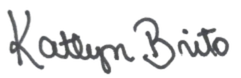 Katlyn Brito